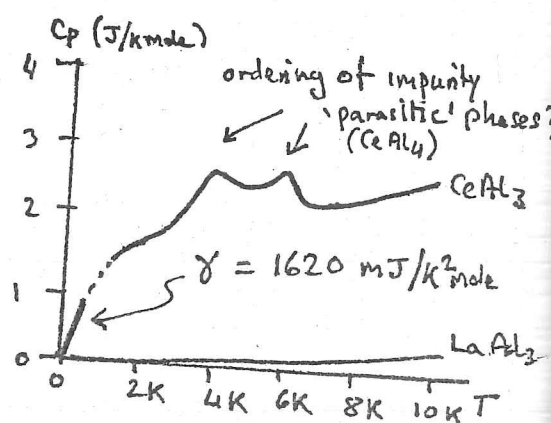 Cp (J/Kmole)
4
ordering of impurity
'parasitic' phases?
(CeAl4)
3
CeAl3
2
γ = 1620 mJ/K² mole
1
LaAl3
0
0 2K 4K 6K 8K 10K T